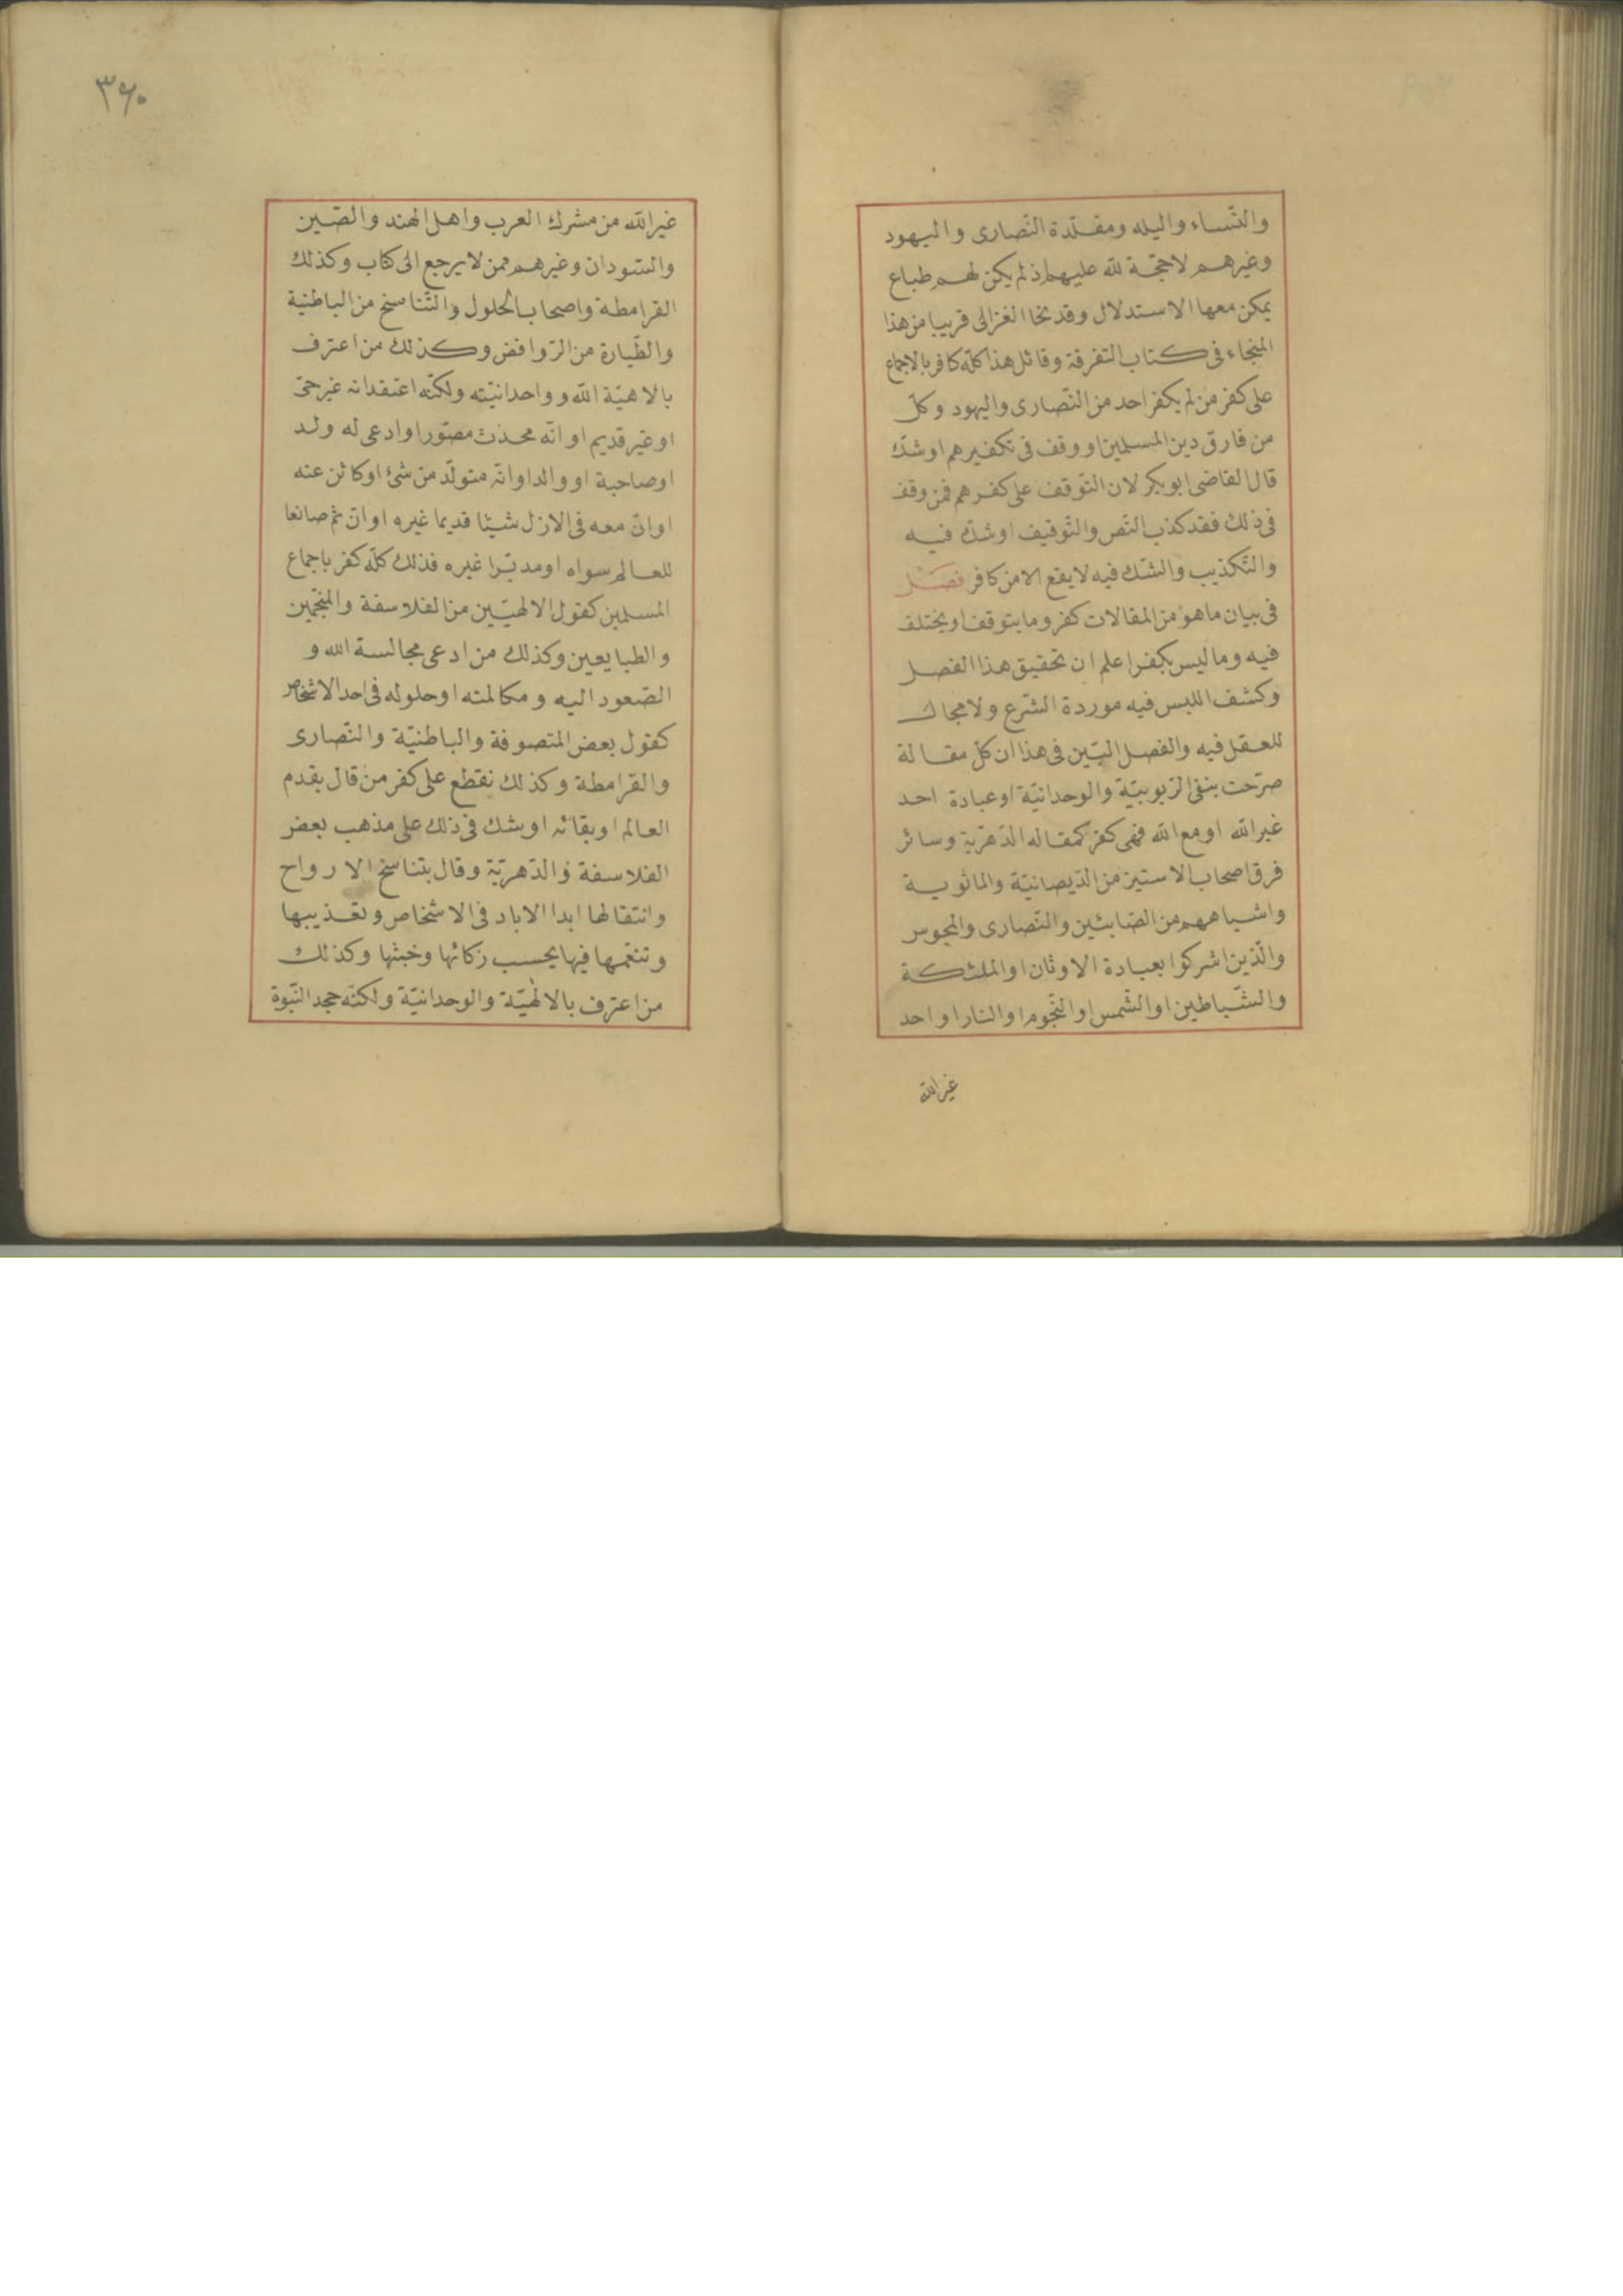 والنّساء والبله ومقلّدة النّصارى واليهود
وغيرهم لاحجّة لله عليهم اذ لم يكن لهم طباع
يمكن معها الاستدلال وقد نحا الغزالى قريبا من هذا
المنحاء فى كتاب التفرقة وقائل هذا كلّه كافر بالاجماع
على كفر من لم يكفر احد من النّصارى واليهود وكلّ
من فارق دين المسلمين او وقف فى تكفيرهم او شكّ
قال القاضى ابو بكر لان التّوقف على كفرهم فمن وقف
فى ذلك فقد كذب النّص والتّوقيف او شكّ فيه
والتّكذيب والشّك فيه لايقع الا من كافر فصل
فى بيان ماهو من المقالات كفر وما يتوقف او يختلف
فيه وما ليس بكفر اعلم ان تحقيق هذا الفصل
وكشف اللبس فيه موردة الشّرع ولا مجال
للعقل فيه والفصل البيّن فى هذا ان كلّ مقالة
صرّحت بنفى الرّبوبيّة والوحدانيّة او عبادة احد
غير الله او مع الله فهى كفر كمقاله الدّهريّة وسائر
فرق اصحاب الاستين من الدّيصانيّة والمانوية
واشباههم من الصّابئين والنّصارى والمجوس
والّذين اشركوا بعبادة الاوثان او الملئكة
والشّياطين او الشّمس او النّجوم او النار او احد
غير الله
٣٦٠
غير الله من مشرك العرب واهل الهند والصّين
والسّودان وغيرهم ممن لا يرجع الى كتاب وكذلك
القرامطة واصحاب الحلول والتّناسخ من الباطنية
والطّيارة من الرّوافض وكذلك من اعترف
بالاهيّة الله وواحدانيّته ولكنّه اعتقد انه غير حىّ
او غير قديم او انّه محدث مصوّر او ادعى له ولد
او صاحبة او والد او انّه متولّد من شئ او كائن عنه
او انّ معه فى الازل شيئا قديما غيره او انّ ثم صانعا
للعالم سواه او مدبّرا غيره فذلك كلّه كفر باجماع
المسلمين كقول الالهيّين من الفلاسفة والمنجّمين
والطبايعين وكذلك من ادعى مجالسة الله و
الصّعود اليه ومكالمته او حلوله فى احد الاشخاص
كقول بعض المتصوفة والباطنيّة والنّصارى
والقرامطة وكذلك نقطع على كفر من قال بقدم
العالم او بقائه او بشك فى ذلك على مذهب بعض
الفلاسفة والدّهريّة وقال بتناسخ الارواح
وانتقالها ابدا الاباد فى الاشخاص وتعذيبها
وتنعّمها فيها بحسب زكائها وخبثها وكذلك
من اعترف بالالهيّة والوحدانيّة ولكنّه جحد النّبوة